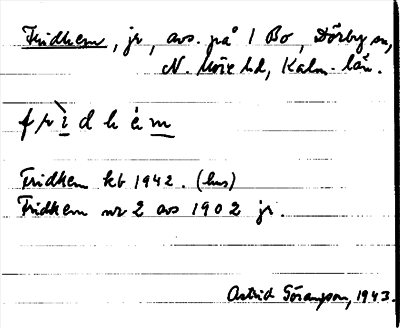 Fridhem, jr, avs. på 1 Bo, Dörby sn,
N. Möre hd, Kalm. län.
f r ì d h è m
Fridhem kb 1942. (hus)
Fridhem nr 2 avs 1902 jr.
Astrid Göransson, 1943.